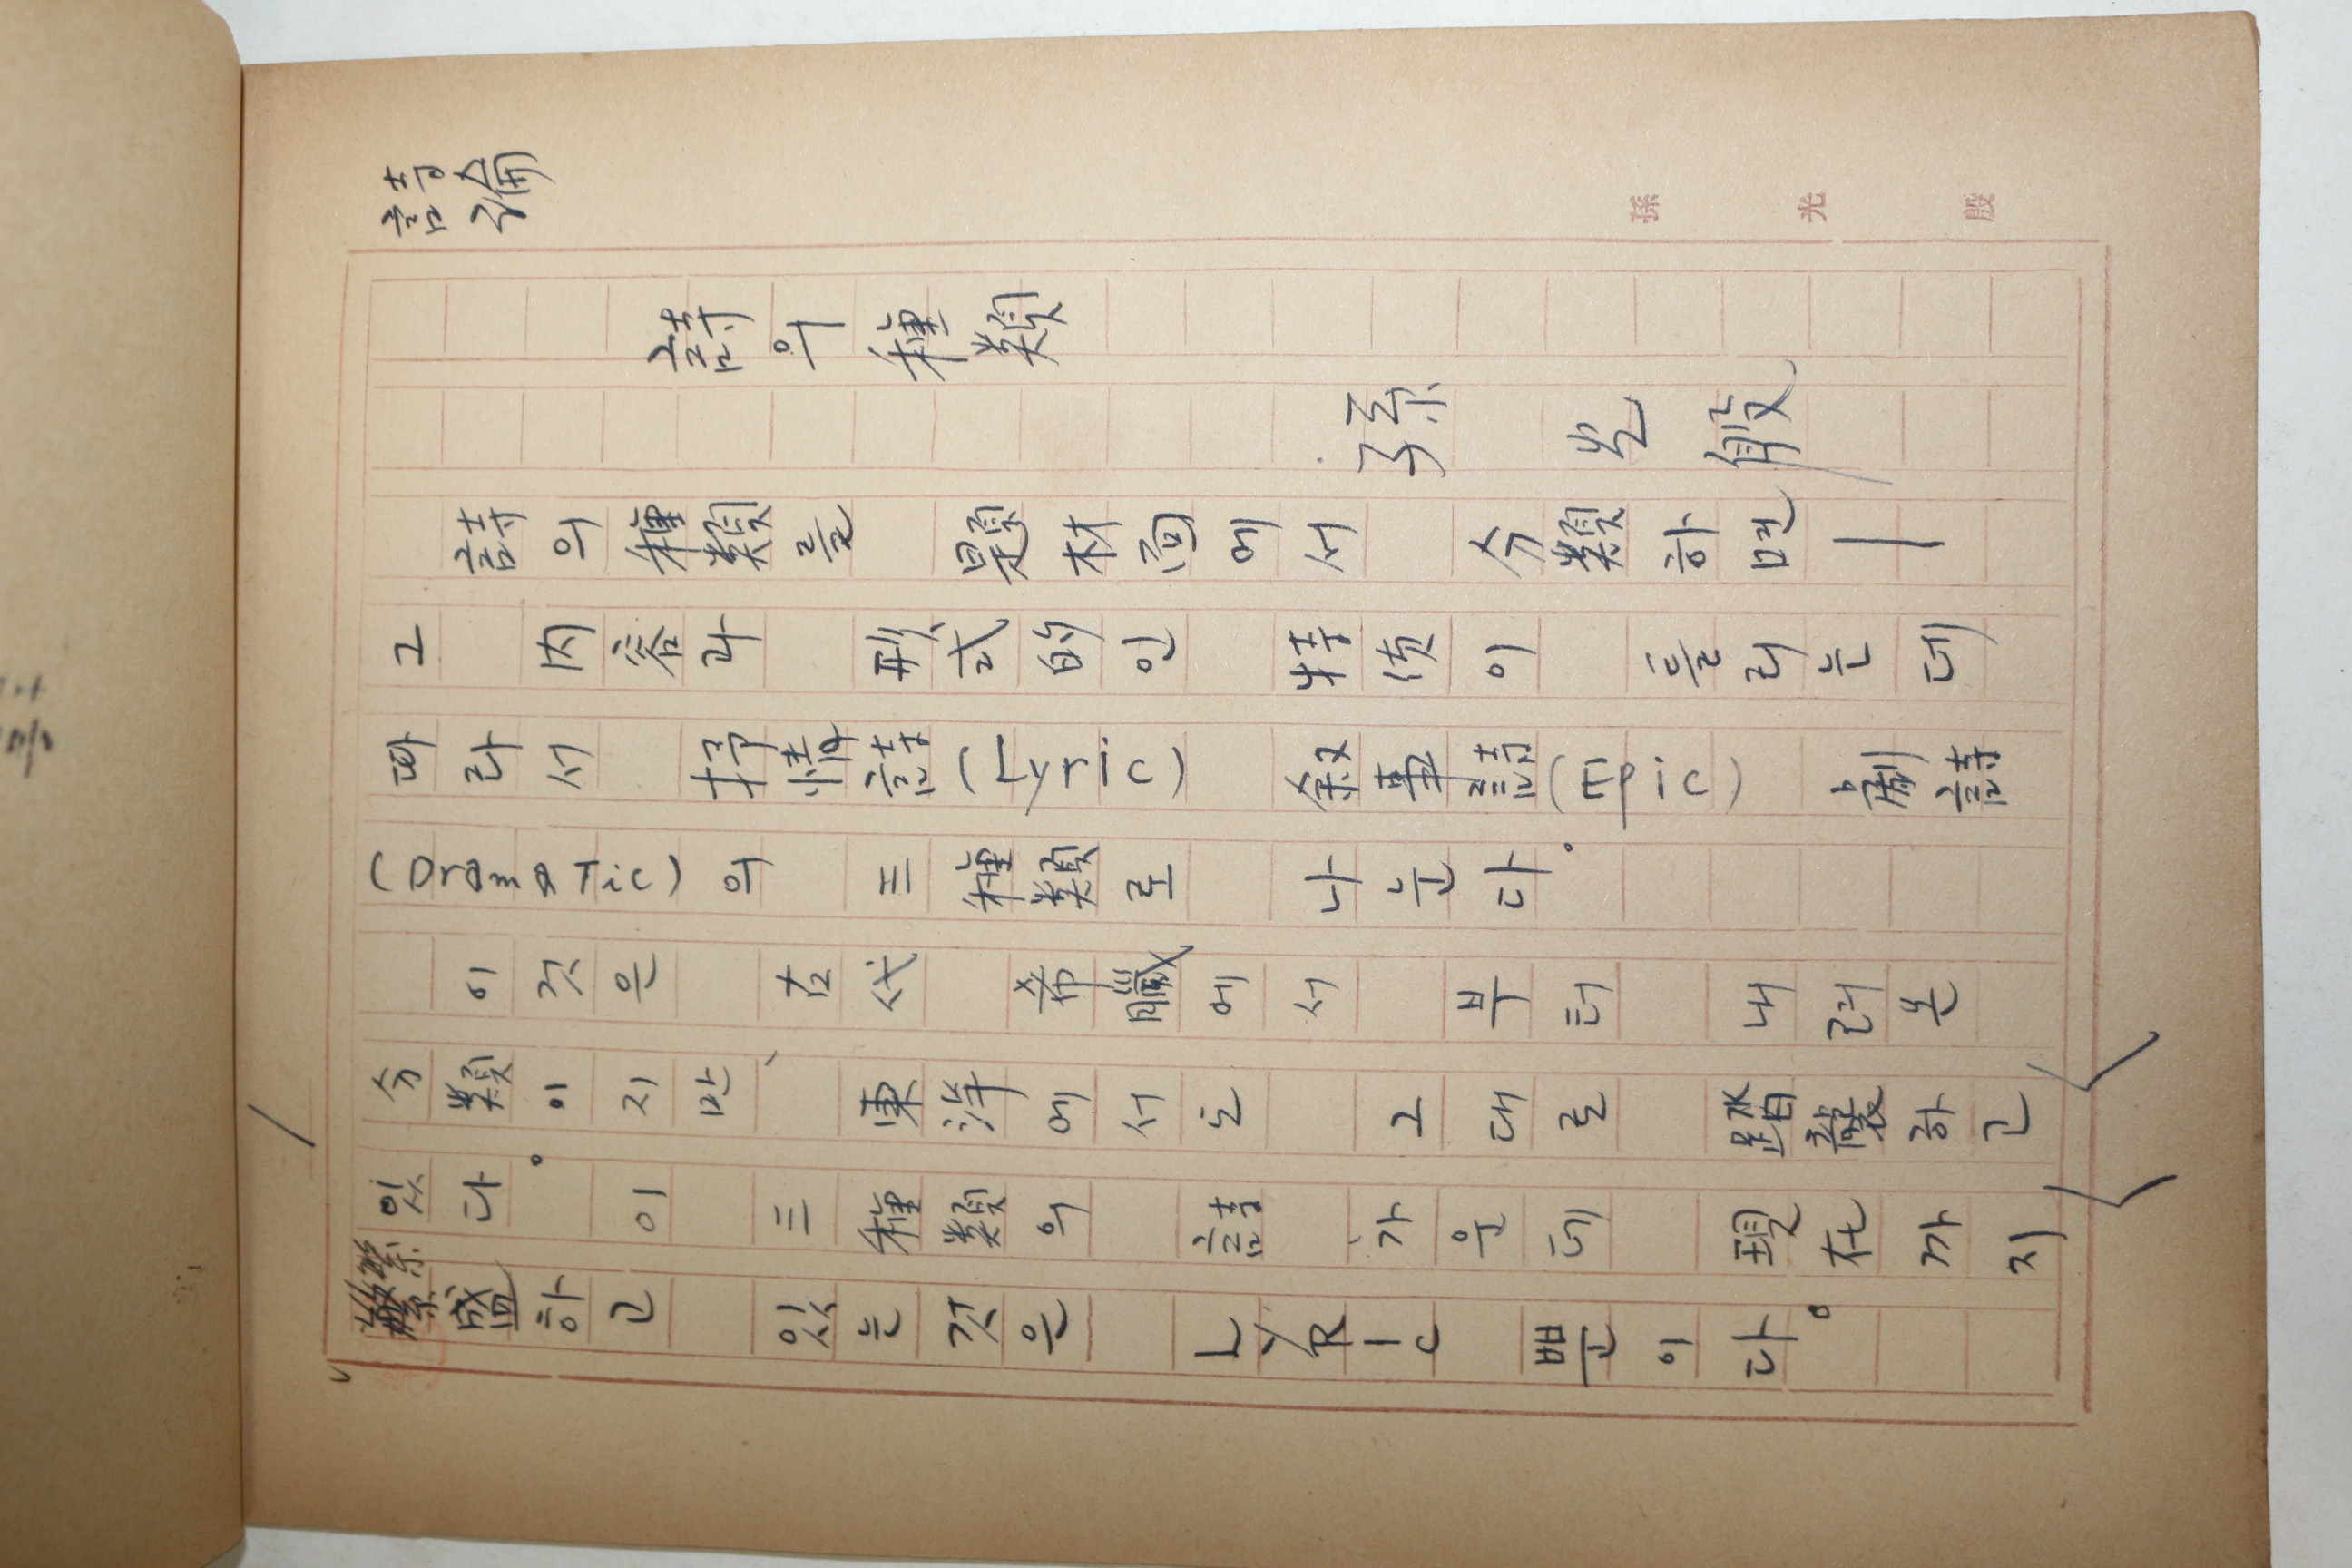 詩論
孫 光 殷
詩의種類
孫 光 殷
詩의種類를 題材面에서 分類하면—
그 内容과 形式的인 特使이 틀리는데
따라서 抒情詩(Lyric) 叙事詩(Epic) 劇詩
(Dramatic)의 三種類로 나눈다。
이것은 古代 希臘에서 부터 내려온
分類이지만、東洋에서는 그대로 踏襲하고
있다。이 三種類의 詩 가운데 現在까지
繁盛하고 있는것은 LYRIC 뿐이다。